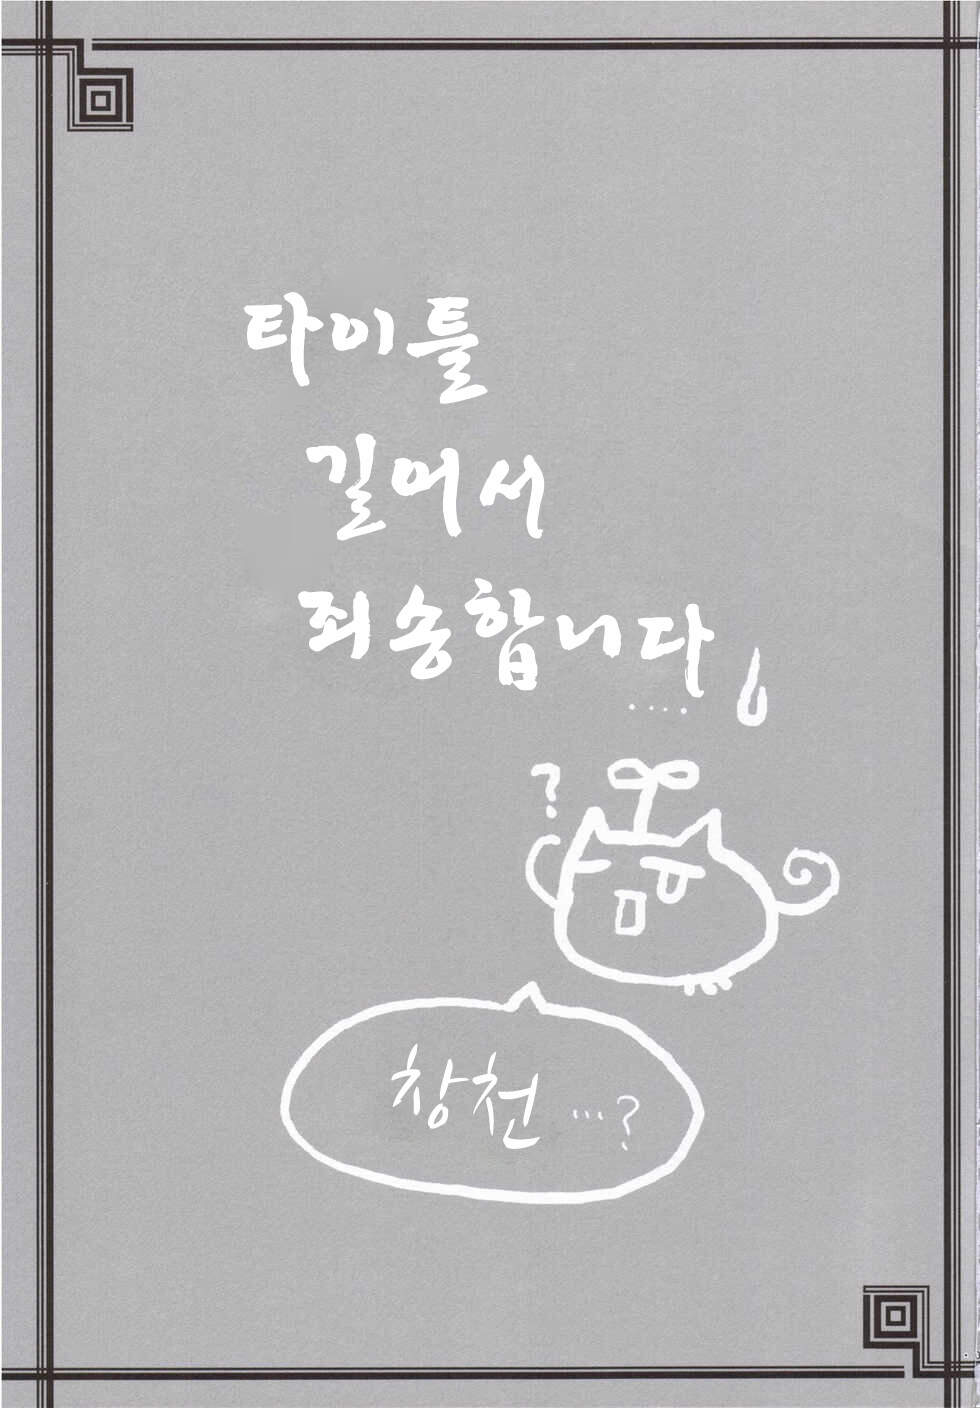 타이틀
길어서
죄송합니다
....
?
창천 …?